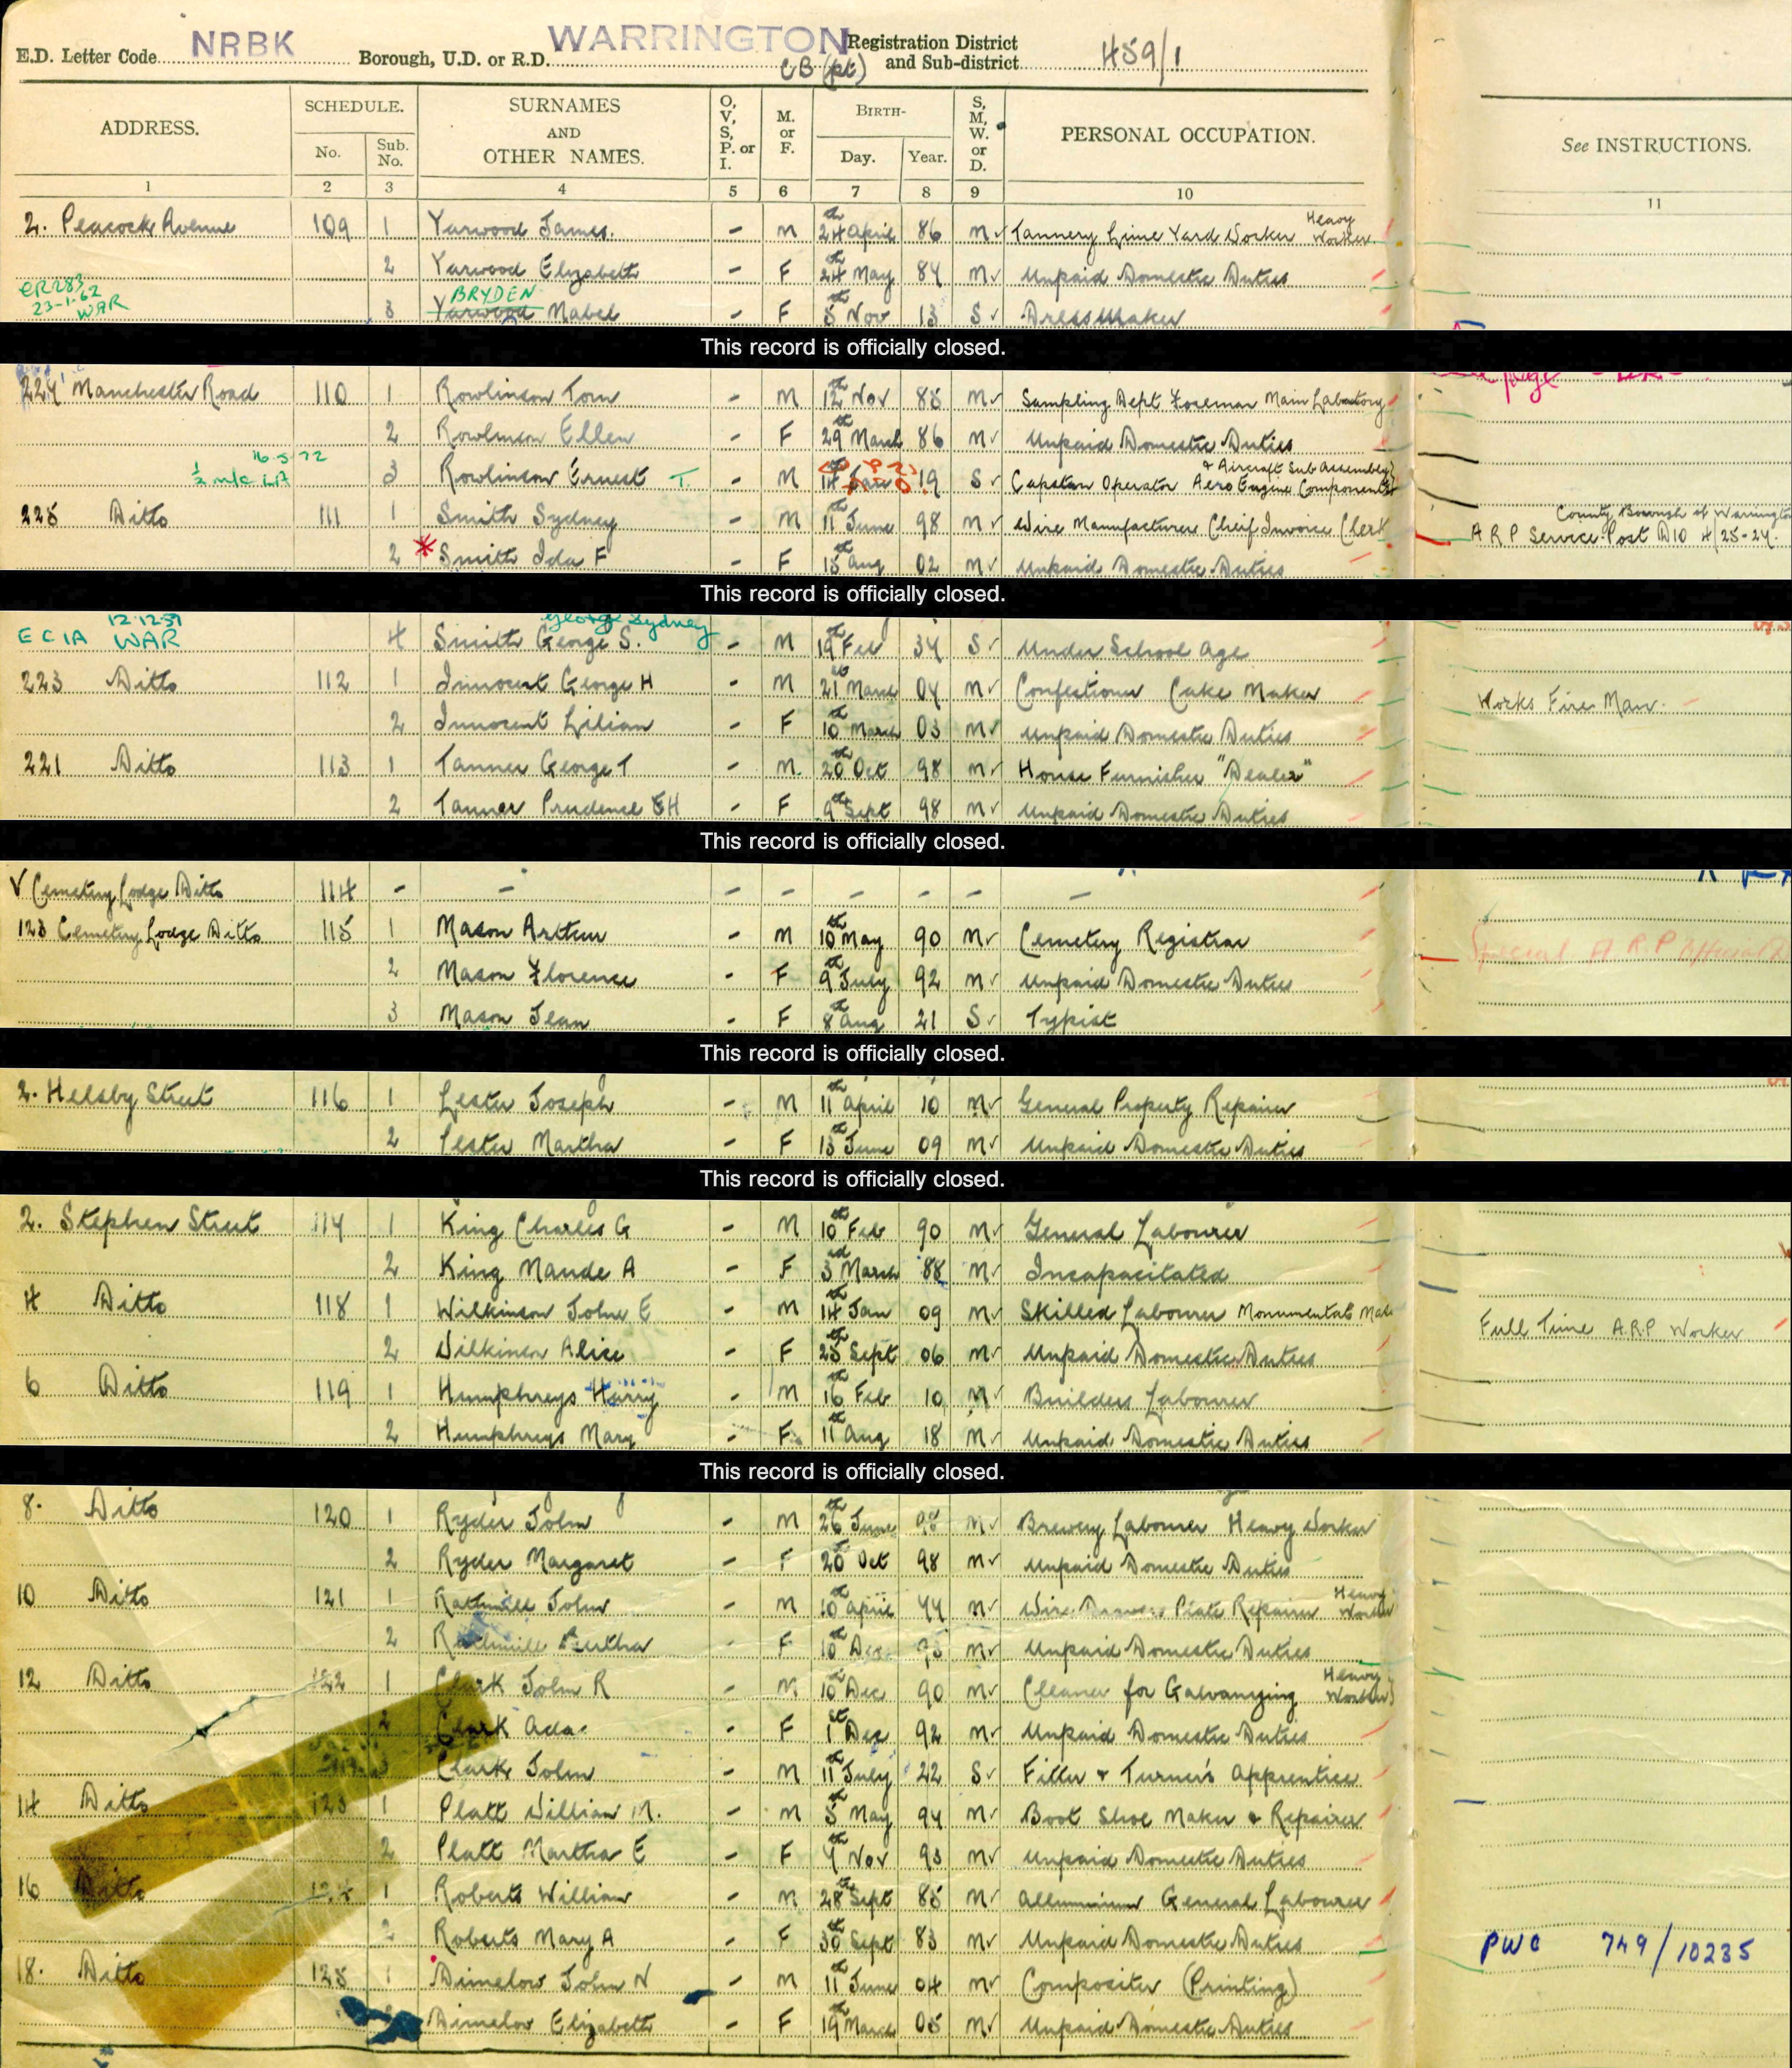 E.D. Letter Code NRBK Borough, U.D. or R.D. WARRINGTON CB (pt) Registration District and Sub-district 459/1
ADDRESS. SCHEDULE. No. Sub. No. SURNAMES AND OTHER NAMES. O, V, S, P. or I. M. or F. BIRTH- Day. Year. S, M, W. or D. PERSONAL OCCUPATION. See INSTRUCTIONS.
1 2 3 4 5 6 7 8 9 10 11
2. Peacock Avenue 109 1 Yarwood James. - M 24th April 86 M Tannery Lime Yard Worker Heavy Worker
2 Yarwood Elizabeth - F 24th May 84 M Unpaid Domestic Duties
ER283 23-1-62 WAR 3 Yarwood BRYDEN Mabel - F 5th Nov 13 S Dressmaker
This record is officially closed.
227 Manchester Road 110 1 Rowlinson Tom - M 12th Nov 85 M Sampling Dept Foreman Main Laboratory
2 Rowlinson Ellen - F 29th March 86 M Unpaid Domestic Duties
16-5-72 3 Rowlinson Ernest T. - M 19 S Capstan Operator Aero Engine Components & Aircraft Sub Assembly
225 Ditto 111 1 Smith Sydney - M 11th June 98 M Wire Manufacturer Cheif Invoice Clerk County Borough of Warrington A R P Service Post D10 4/25-27.
2 * Smith Ida F - F 15th Aug 02 M Unpaid Domestic Duties
This record is officially closed.
ECIA 12.12.51 WAR 4 Smith George S. George Sydney - M 19th Feb 34 S Under School Age
223 Ditto 112 1 Innocent George H - M 21st March 04 M Confectioner Cake Maker Works Fire Man.
2 Innocent Lilian - F 10th March 03 M Unpaid Domestic Duties
221 Ditto 113 1 Tanner George T - M 20th Oct 98 M House Furnisher "Dealer"
2 Tanner Prudence EH - F 9th Sept 98 M Unpaid Domestic Duties
This record is officially closed.
√ Cemetery Lodge Ditto 114 - - - - - - - -
123 Cemetery Lodge Ditto 115 1 Mason Arthur - M 10th May 90 M Cemetery Registrar Special A.R.P
2 Mason Florence - F 9th July 92 M Unpaid Domestic Duties
3 Mason Jean - F 8th Aug 21 S Typist
This record is officially closed.
2. Helsby Street 116 1 Lester Joseph - M 11th April 10 M General Property Repairer
2 Lester Martha - F 13th June 09 M Unpaid Domestic Duties
This record is officially closed.
2. Stephen Street 117 1 King Charles G - M 10th Feb 90 M General Labourer
2 King Maude A - F 3rd March 88 M Incapacitated
4 Ditto 118 1 Wilkinson John E - M 14th Jan 09 M Skilled Labourer Monumental Full Time A.R.P Worker
2 Wilkinson Alice - F 25th Sept 06 M Unpaid Domestic Duties
6 Ditto 119 1 Humphreys Harry - M 16th Feb 10 M Builders Labourer
2 Humphreys Mary - F 11th Aug 18 M Unpaid Domestic Duties
This record is officially closed.
8. Ditto 120 1 Ryder John - M 26th June 98 M Brewery Labourer Heavy Worker
2 Ryder Margaret - F 20th Oct 98 M Unpaid Domestic Duties
10 Ditto 121 1 Rathmill John - M 10th April M Wire Plate Repairer Heavy Worker
2 Rathmill Bertha - F 10th Dec 93 M Unpaid Domestic Duties
12 Ditto 122 1 Clark John R - M 10th Dec 90 M Cleaner for Galvanizing Heavy Worker
2 Clark Ada - F 1st Dec 92 M Unpaid Domestic Duties
3 Clark John - M 11th July 22 S Fitter & Turner's Apprentice
14 Ditto 123 1 Platt William M. - M 5th May 94 M Boot Shoe Maker & Repairer
2 Platt Martha E - F 9th Nov 93 M Unpaid Domestic Duties
16 Ditto 124 1 Roberts William - M 28th Sept 85 M Alluminium General Labourer
2 Roberts Mary A - F 30th Sept 83 M Unpaid Domestic Duties PWC 749/10235
18. Ditto 125 1 Dimelow John N - M 11th June 04 M Compositer (Printing)
2 Dimelow Elizabeth - F 19th March 05 M Unpaid Domestic Duties